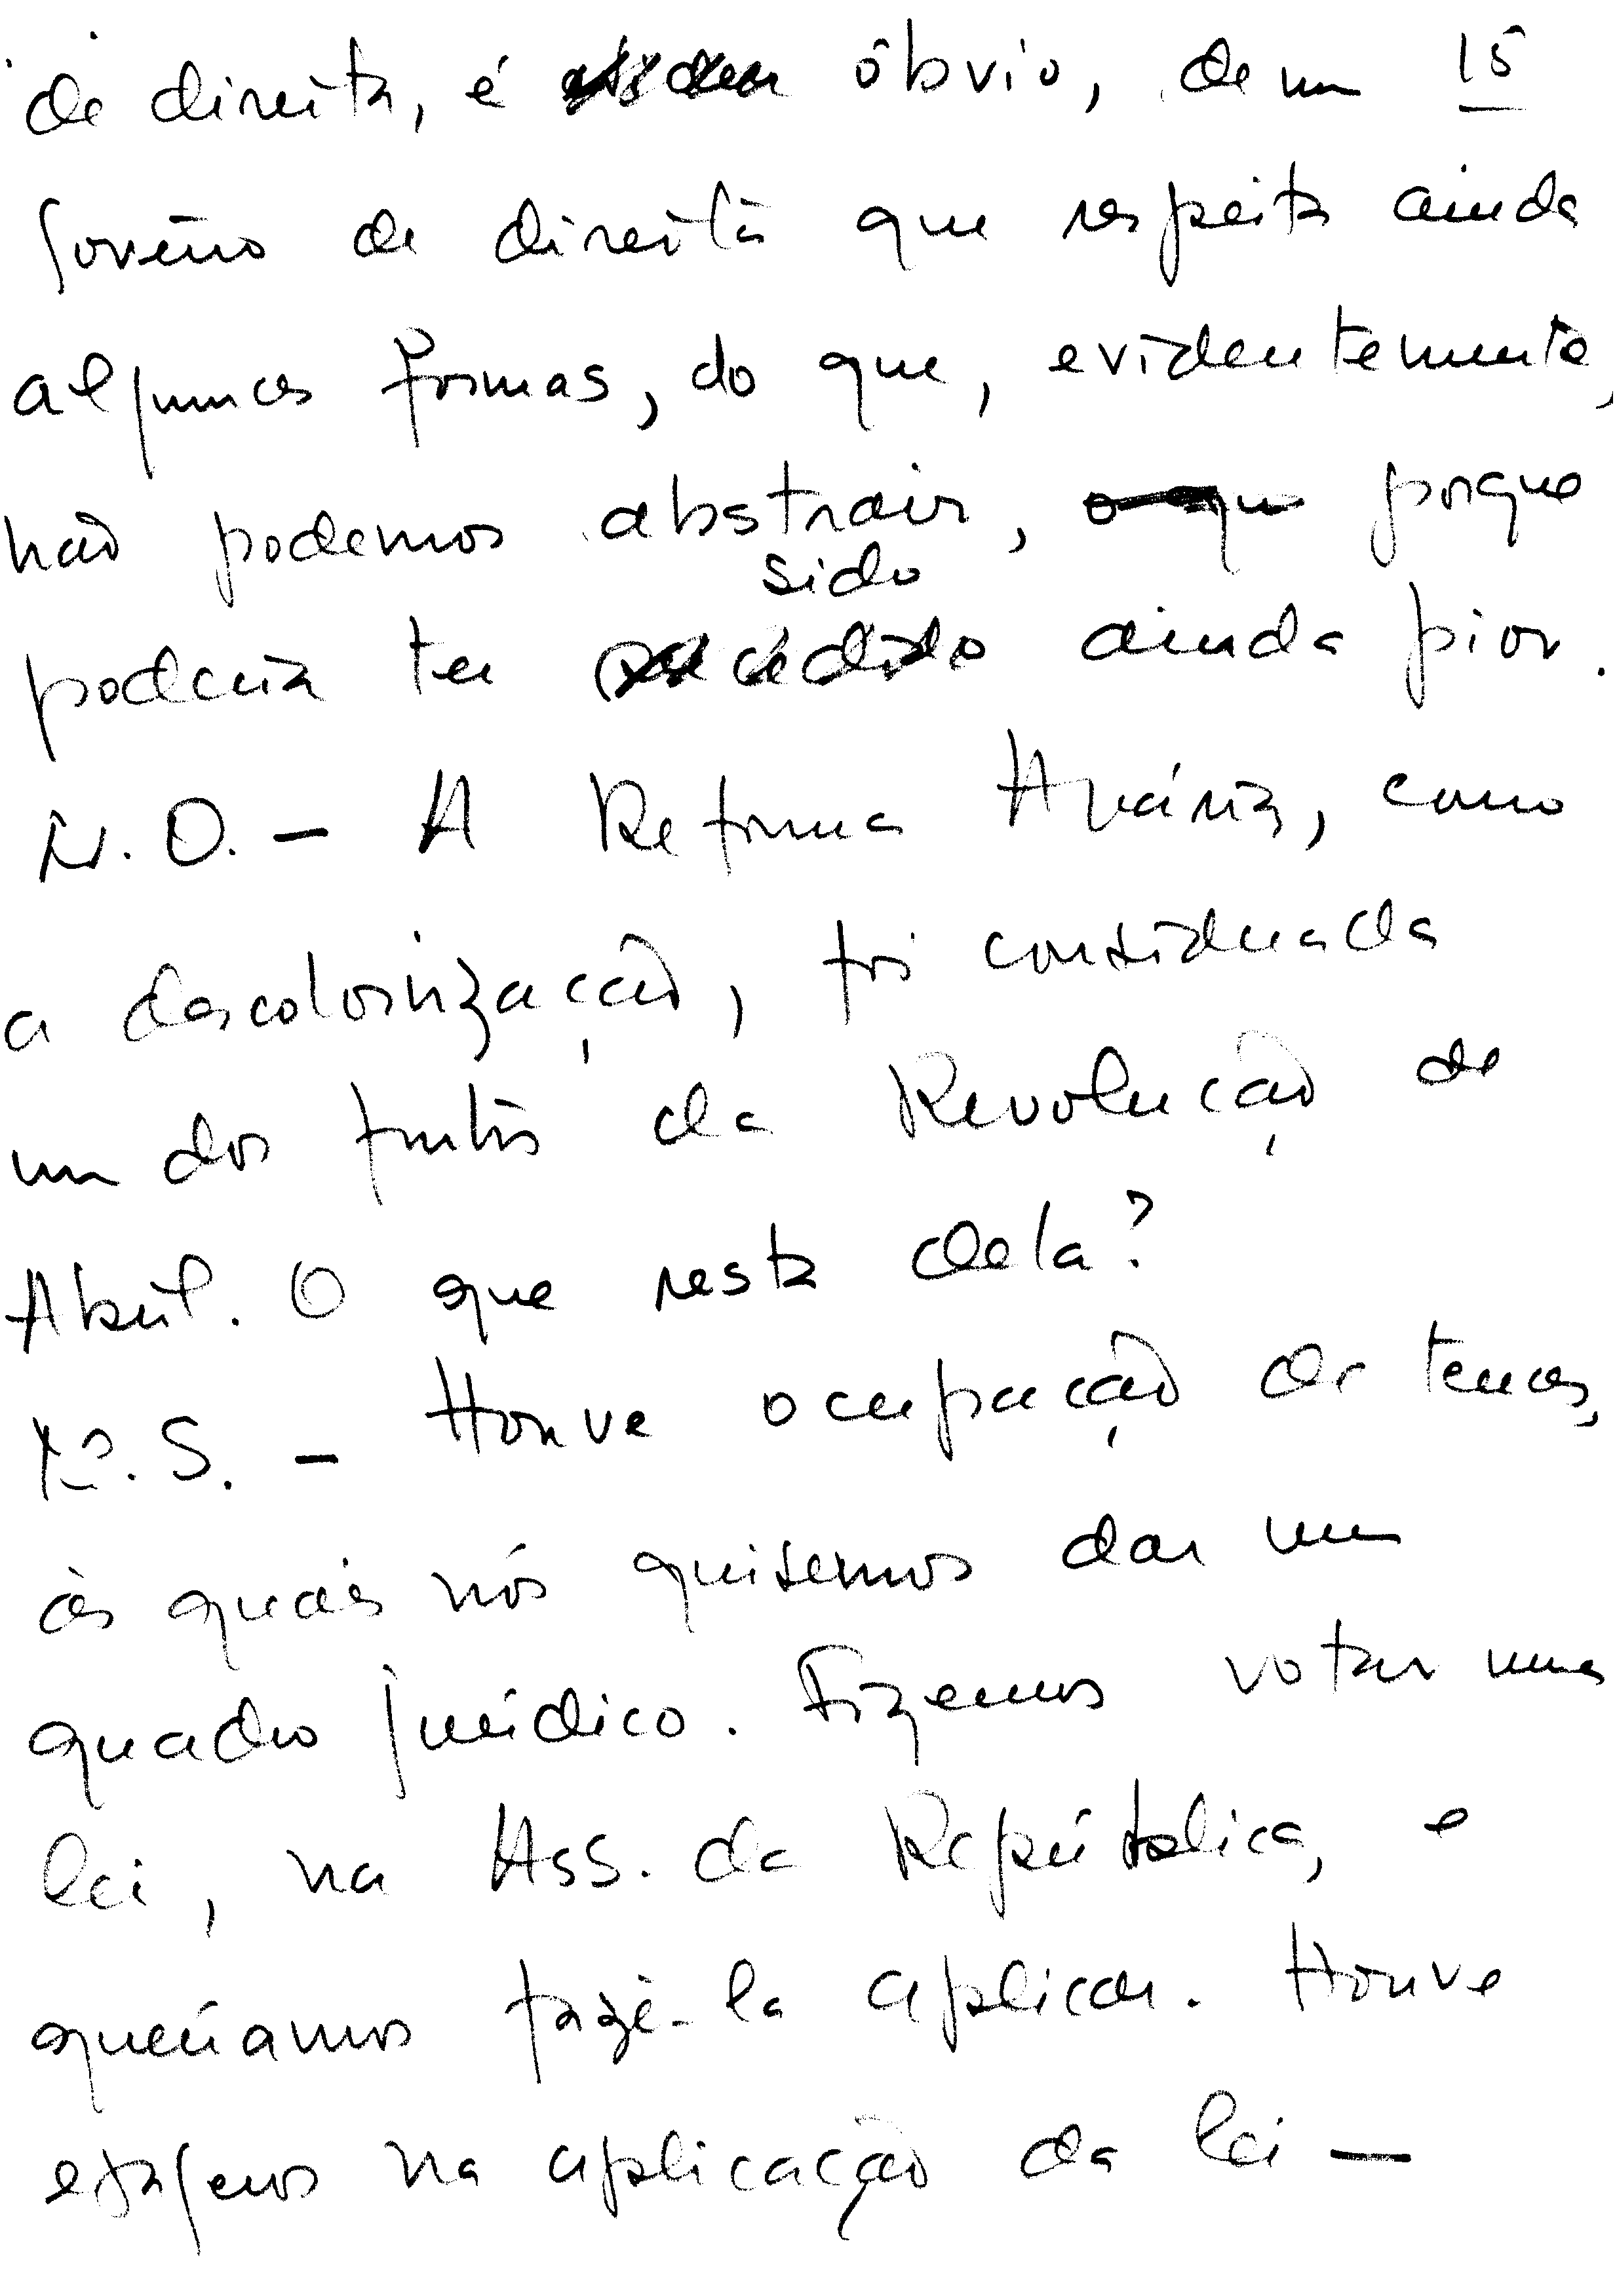 de direita, é óbvio, de um 15
Governo de direita que respeita ainda
algumas formas, do que, evidentemente,
não podemos abstrair, o que porque
sido
poderia ter sucedido ainda pior.
N. O. — A Reforma Agrária, como
a descolonização, foi considerada
um dos frutos da Revolução de
Abril. O que resta dela?
M. S. — Houve ocupação de terras,
às quais nós quisemos dar um
quadro jurídico. Fizemos votar uma
lei, na Ass. da República, e
queríamos fazê-la aplicar. Houve
exageros na aplicação da lei —